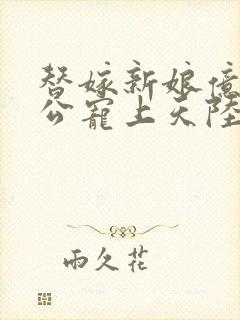 替嫁新娘億
公寵上天陸
雨久花